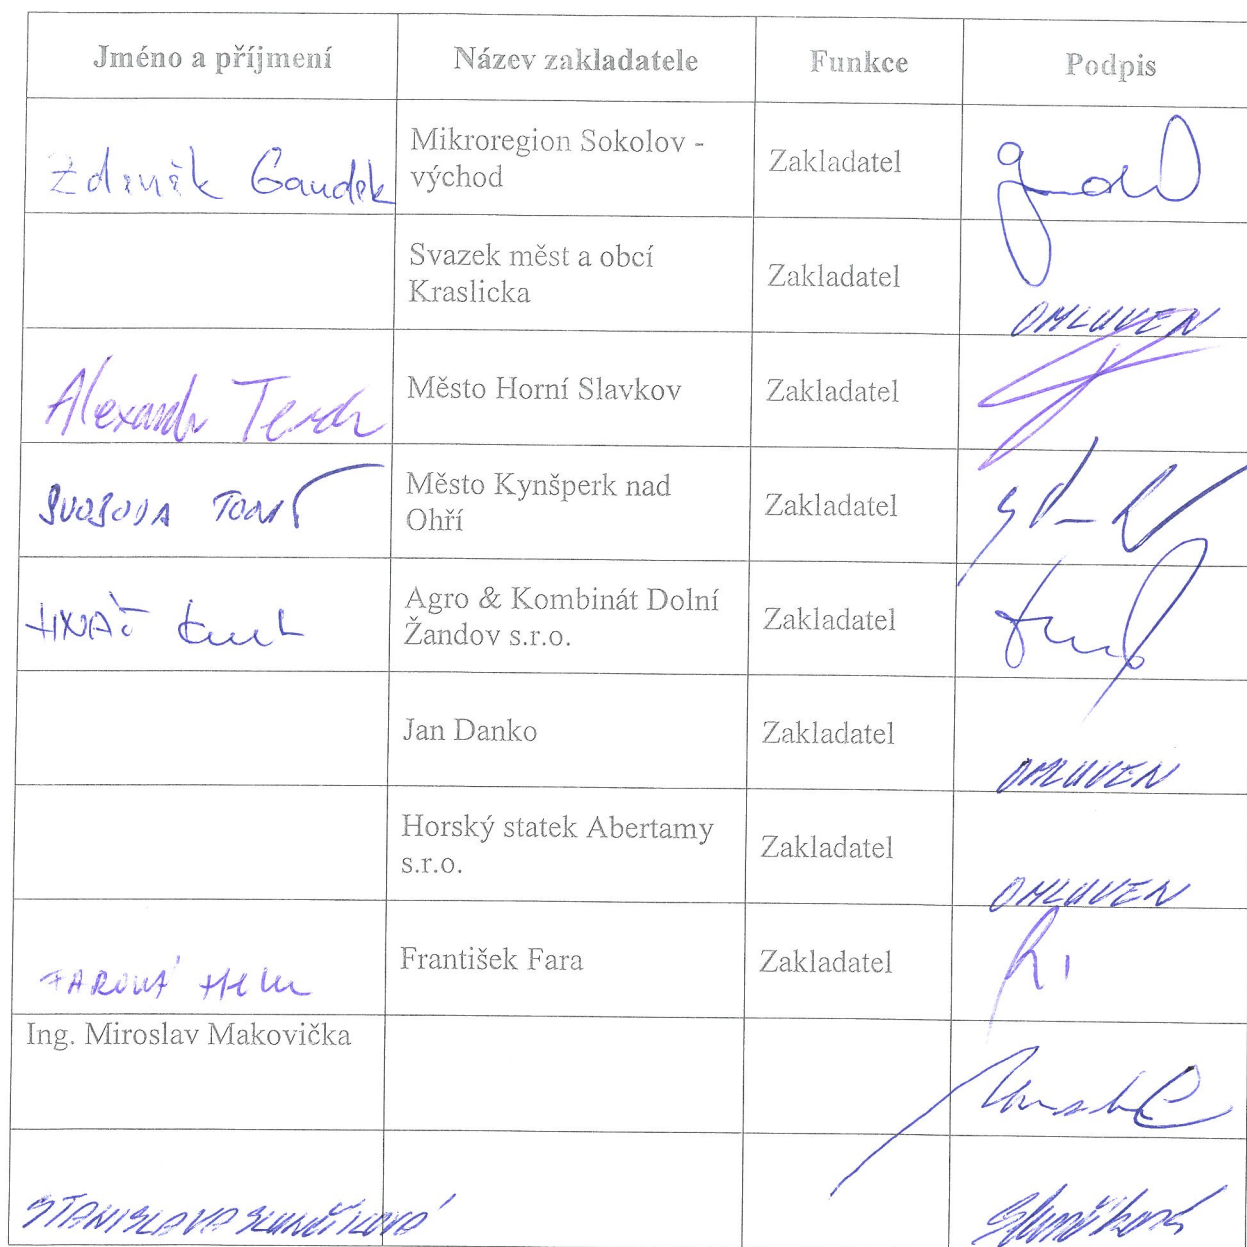 Jméno a příjmení Název zakladatele Funkce Podpis
Zdeněk Gaudek Mikroregion Sokolov -
východ Zakladatel
Svazek měst a obcí
Kraslicka Zakladatel OMLUVEN
Alexandr Terek Město Horní Slavkov Zakladatel
SVOBODA TOMÁŠ Město Kynšperk nad
Ohří Zakladatel
Agro & Kombinát Dolní
Žandov s.r.o. Zakladatel
Jan Danko Zakladatel OMLUVEN
Horský statek Abertamy
s.r.o. Zakladatel OMLUVEN
FAROVÁ František Fara Zakladatel
Ing. Miroslav Makovička
STANISLAVA SLUNČÍKOVÁ